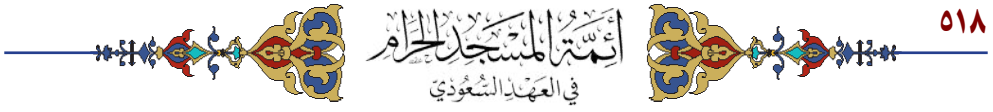 ٥١٨
أئمة المسجد الحرام
في العهد السعودي